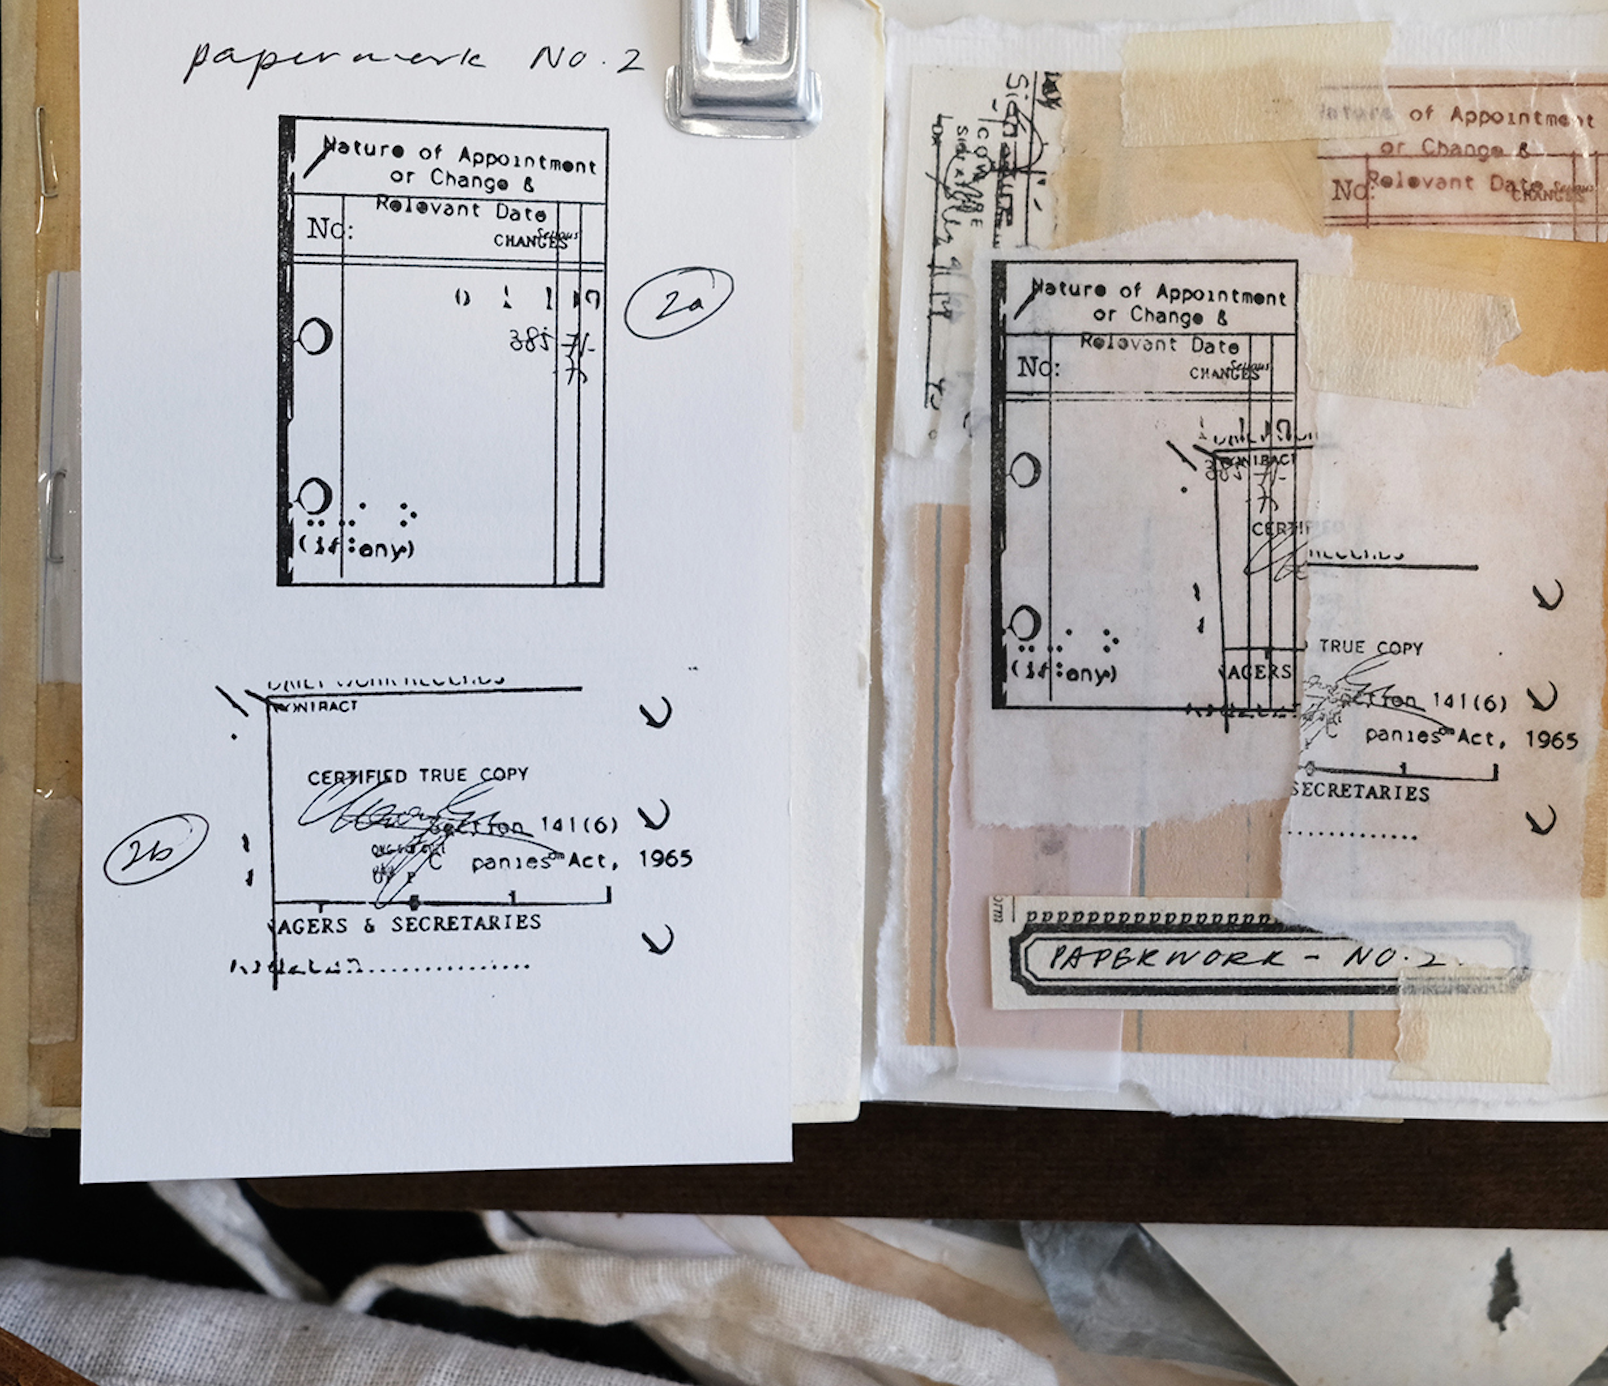 paperwork No. 2
Nature of Appointment
or Change &
Relevant Date
No:
Serious
CHANGES
385
(if any)
2a
DAILY WORK RECORDS
CONTRACT
CERTIFIED TRUE COPY
Section 141(6)
C panies Act, 1965
AGERS & SECRETARIES
2b
Nature of Appointment
or Change &
No: Relevant Date
CHANGES
Nature of Appointment
or Change &
Relevant Date
No:
Serious
CHANGES
CONTRACT
CERTIF
RECORDS
TRUE COPY
(if any)
AGERS
ection 141(6)
panies Act, 1965
SECRETARIES
PAPERWORK - NO. 2